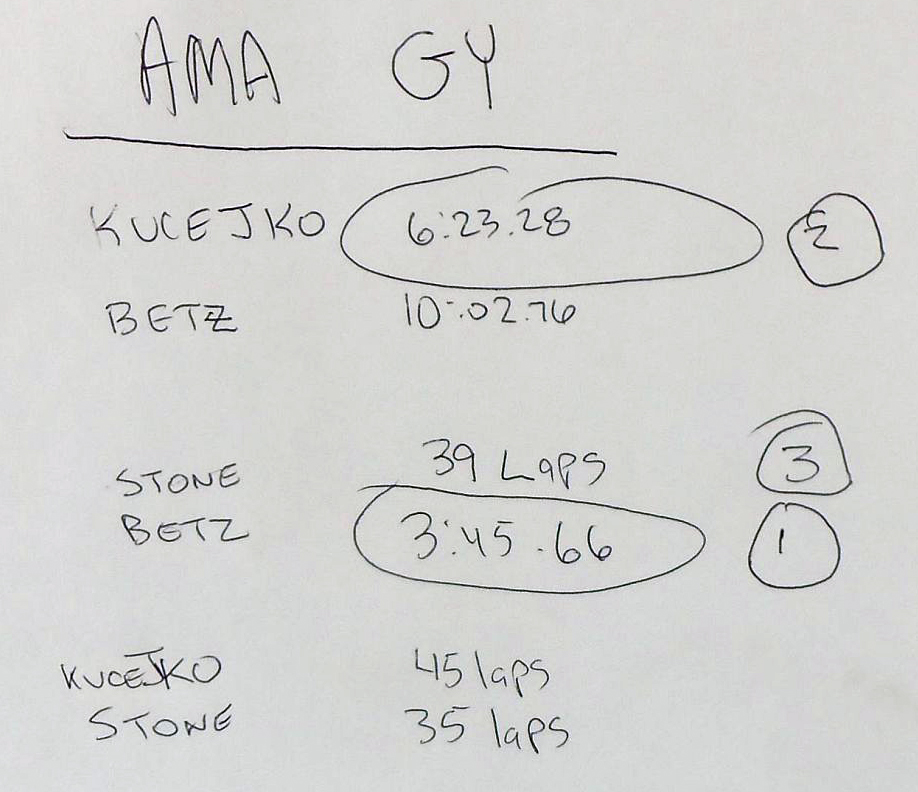 AMA GY
KUCEJKO 6:23.28 2
BETZ 10:02.76
STONE 39 Laps 3
BETZ 3:45.66 1
KUCEJKO 45 laps
STONE 35 laps